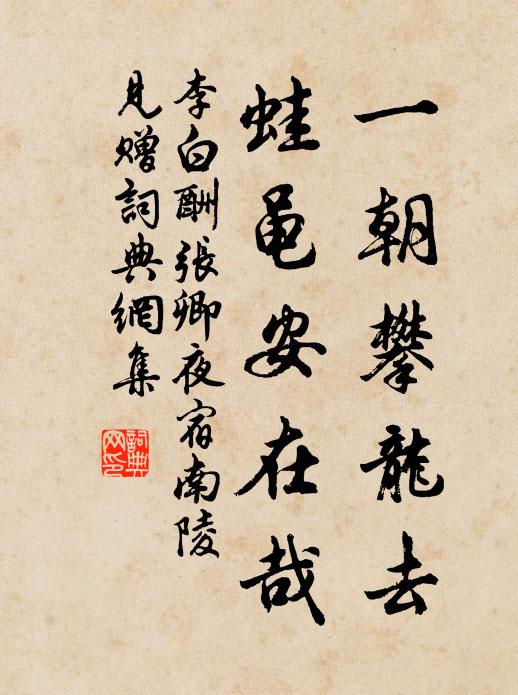 一朝攀龍去
蛙黽安在哉
李白酬張卿夜宿南陵
見贈詞典網集
詞典網印